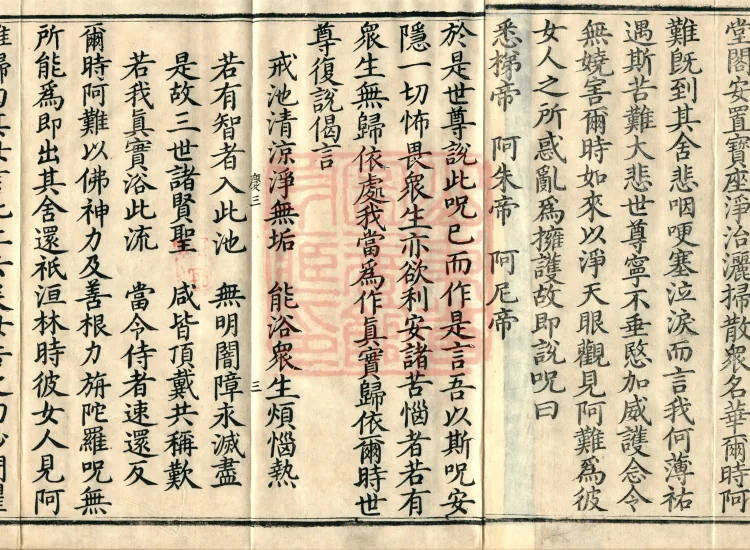 堂閣安置寶座淨治灑掃散衆名華爾時阿
難既到其舍悲咽哽塞泣淚而言我何薄祐
遇斯苦難大悲世尊寧不垂愍加威護念令
無嬈害爾時如來以淨天眼觀見阿難為彼
女人之所惑亂爲擁護故即說呪曰
悉梯帝 阿朱帝 阿尼帝
於是世尊說此呪已而作是言吾以斯呪安
隱一切怖畏衆生亦欲利安諸苦惱者若有
衆生無歸依處我當爲作真實歸依爾時世
尊復說偈言
戒池清涼淨無垢 能浴衆生煩惱熱
慶三 三
若有智者入此池 無明闇障永滅盡
是故三世諸賢聖 咸皆頂戴共稱歎
若我眞實浴此流 當令侍者速還反
爾時阿難以佛神力及善根力旃陀羅呪無
所能爲即出其舍還祇洹林時彼女人見阿